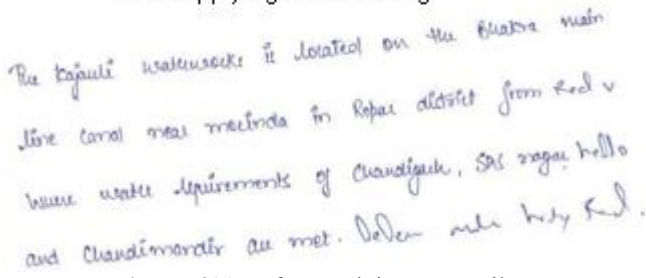 The Kajauli waterworks is located on the Bhakra main
line canal near morinda in Ropar district from Red v
where water requirements of Chandigarh, SAS nagar hello
and Chandimandir are met. help Red.